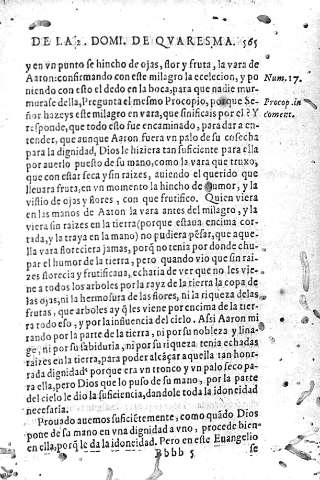 DE LA 2. DOMI. DE QVARESMA. 565
y en vn punto se hincho de ojas, flor y fruta, la vara de
Aaron: confirmando con este milagro la eceleciõn, y po
niendo con esto el dedo en la boca, para que nadie mur-
murase della, Pregunta el mesmo Procopio, porque Se-
ñor hazeys este milagro en vara, que sinificais por el? Y
responde, que todo esto fue encaminado, para dar a en-
tender, que aunque Aaron fuera vn palo de su cosecha
para la dignidad, Dios le hiziera tan suficiente para ella
por auerlo puesto de su mano, como la vara que truxo,
que con estar seca y sin raizes, auiendo el querido que
lleuara fruta, en vn momento la hincho de humor, y la
vistio de ojas y flores, con que frutifico. Quien viera
en las manos de Aaron la vara antes del milagro, y la
viera sin raizes en la tierra (porque estaua encima cor-
tada, y la traya en la mano) no pudiera pẽsar, que aque-
lla vara floreciera jamas, porq̃ no tenia por donde chu-
par el humor de la tierra, pero quando vio que sin rai-
zes florecia y frutificaua, echaria de ver que no les vie-
ne a todos los arboles por la rayz de la tierra la copa de
las ojas, ni la hermosura de las flores, ni la riqueza de las
frutas, que arboles ay q̃ les viene por encima de la tier-
ra todo eso, y por la influencia del cielo. Assi Aaron mi
rando por la parte de la tierra, ni por su nobleza y lina-
ge, ni por su sabiduria, ni por su riqueza tenia echadas
raizes en la tierra, para poder alcãçar aquella tan hon-
rada dignidad, porque era vn tronco y vn palo seco pa-
ra ella, pero Dios que lo puso de su mano, por la parte
del cielo le dio la suficiencia, dandole toda la idoneidad
necesaria.
Prouado auemos suficiẽtemente, como quãdo Dios
pone de su mano en vna dignidad a vno, procede bien
en ella, porq̃ le da la idoneidad. Pero en este Euangelio
Bbbb 5 se
Num. 17.
Procop. in
coment.